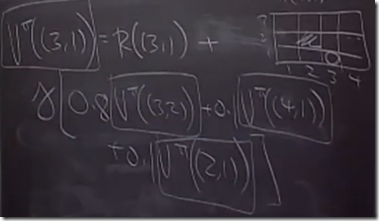 V^π((3,1)) = R((3,1)) +
γ[0.8 V^π((3,2)) + 0.1 V^π((4,1))
+ 0.1 V^π((2,1))]
3
2
1
1 2 3 4